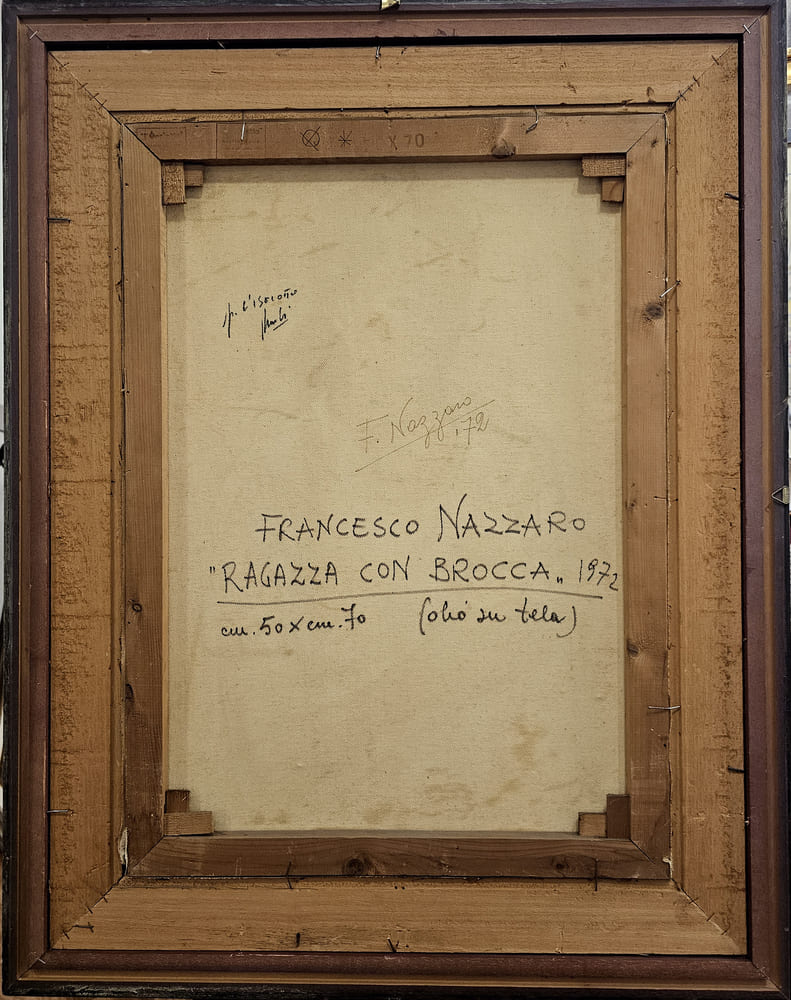 X 70
F. Nazzaro
'72
FRANCESCO NAZZARO
"RAGAZZA CON BROCCA„ 1972
cm. 50 x cm. 70 (olio su tela)